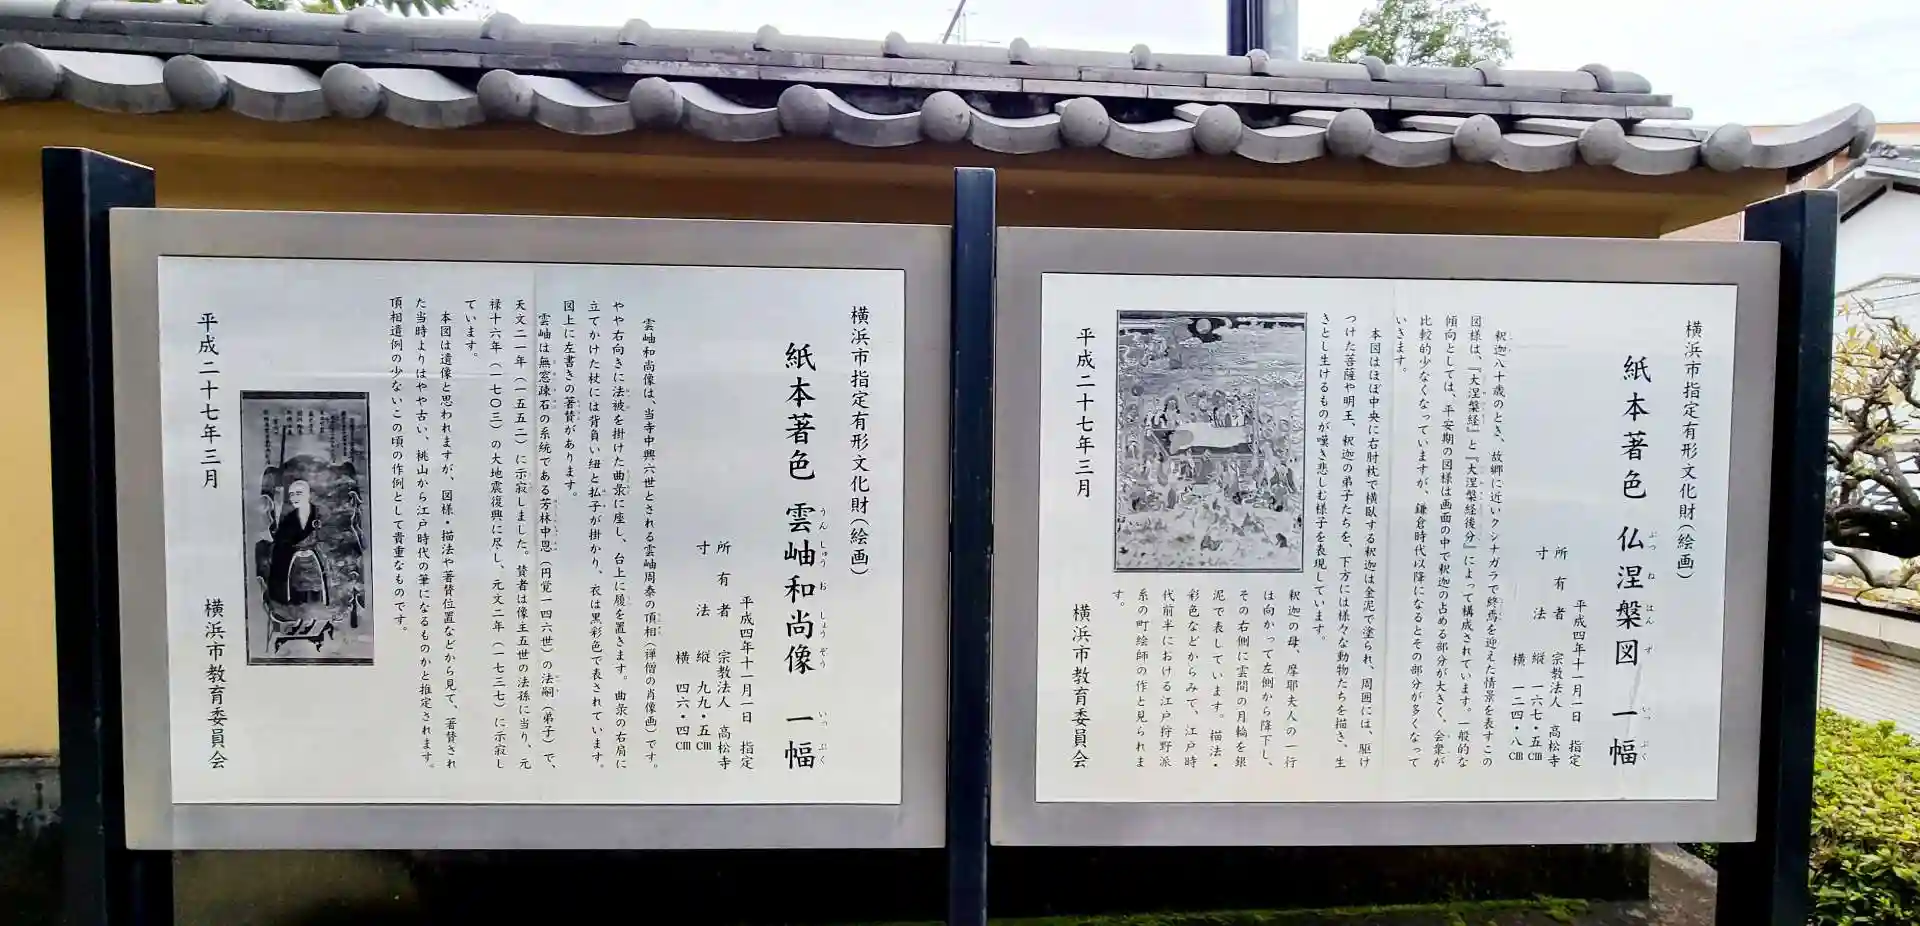 横浜市指定有形文化財(絵画)
紙本著色 仏涅槃図 一幅
ぶつ ね はん ず いっ ぷく
平成四年十一月一日 指定
所有者 宗教法人 高松寺
寸法 縦 一六七・五㎝
横 一二四・八㎝
釈迦八十歳のとき、故郷に近いクシナガラで終焉を迎えた情景を表すこの
図様は、『大涅槃経』と『大涅槃経後分』によって構成されています。一般的な
傾向としては、平安期の図様は画面の中で釈迦の占める部分が大きく、会衆が
比較的少なくなっていますが、鎌倉時代以降になるとその部分が多くなって
いきます。
本図はほぼ中央に右肘枕で横臥する釈迦は金泥で塗られ、周囲には、駆け
つけた菩薩や明王、釈迦の弟子たちを、下方には様々な動物たちを描き、生
きとし生けるものが嘆き悲しむ様子を表現しています。
釈迦の母、摩耶夫人の一行
は向かって左側から降下し、
その右側に雲間の月輪を銀
泥で表しています。描法・
彩色などからみて、江戸時
代前半における江戸狩野派
系の町絵師の作と見られま
す。
平成二十七年三月
横浜市教育委員会
横浜市指定有形文化財(絵画)
紙本著色 雲岫和尚像 一幅
うん しゅう お しょう ぞう いっ ぷく
平成四年十一月一日 指定
所有者 宗教法人 高松寺
寸法 縦 九九・五㎝
横 四六・四㎝
雲岫和尚像は、当寺中興六世とされる雲岫周泰の頂相(禅僧の肖像画)です。
やや右向きに法被を掛けた曲彔に座し、台上に履を置きます。曲彔の右肩に
立てかけた杖には背負い紐と払子が掛かり、衣は黒彩色で表されています。
図上に左書きの著賛があります。
雲岫は無窓疎石の系統である芳林中恩(円覚一四六世)の法嗣(弟子)で、
天文二一年(一五五二)に示寂しました。賛者は像主五世の法孫に当り、元
禄十六年(一七〇三)の大地震復興に尽し、元文二年(一七三七)に示寂し
ています。
本図は遺像と思われますが、図様・描法や著賛位置などから見て、著賛され
た当時よりはやや古い、桃山から江戸時代の筆になるものかと推定されます。
頂相遺例の少ないこの頃の作例として貴重なものです。
平成二十七年三月
横浜市教育委員会